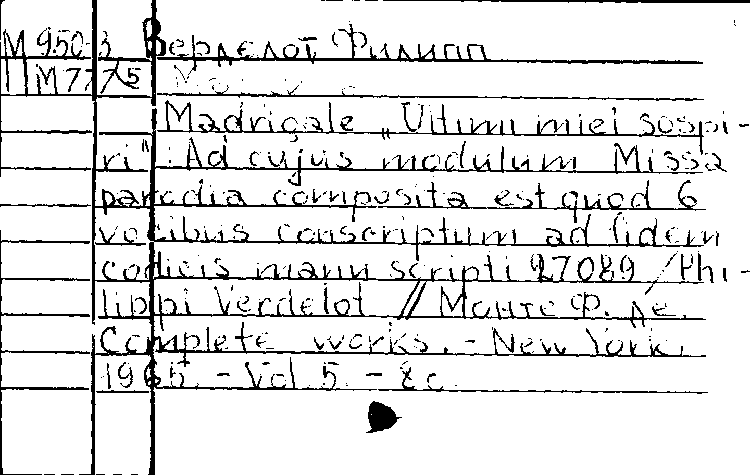 М 950-3 Верделот Филипп
П М 777/5
Madrigale „Ultimi miei sospi-
ri": Ad cujus modulum Missa
parodia composita est quod 6
vocibus conscriptum ad fidem
codicis manu scripti 27089 / Phi-
lippi Verdelot // Монте Ф. де.
Complete works. - New York,
1965. - Vol. 5. - 8 c.